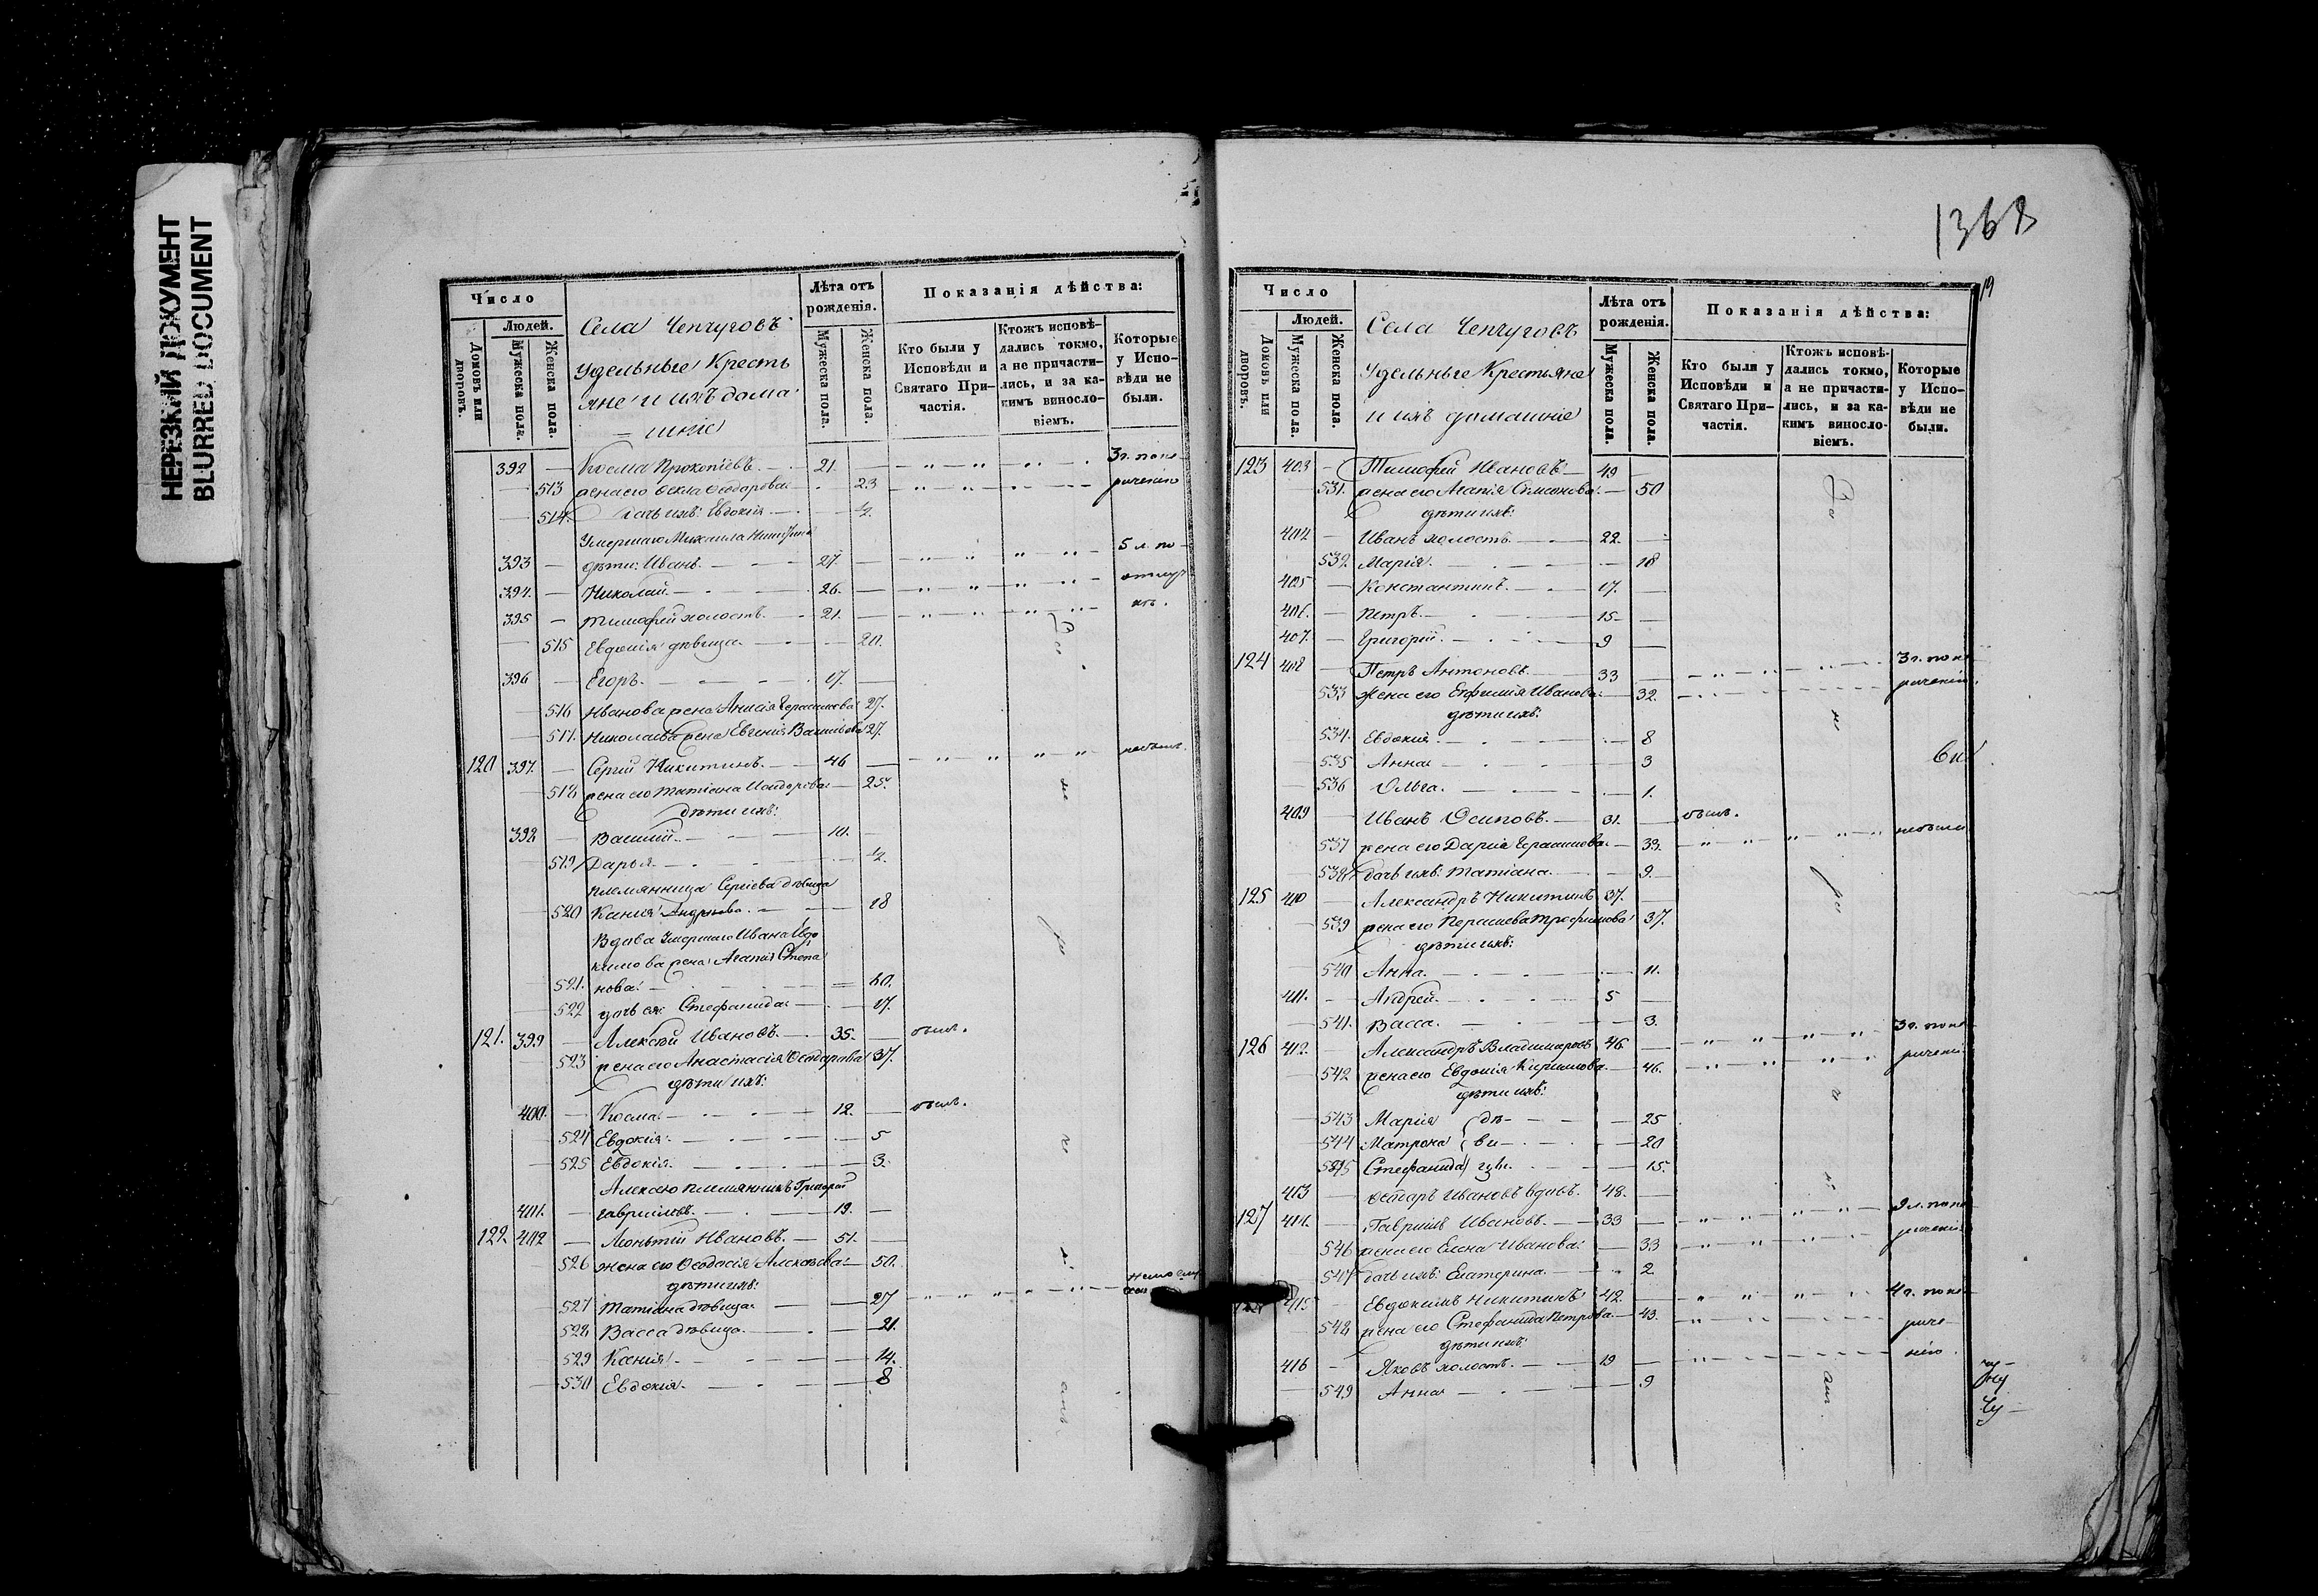 НЕРЕЗКИЙ ДОКУМЕНТ
BLURRED DOCUMENT
Число
Людей.
Домовъ или дворовъ.
Мужеска пола.
Женска пола.
Села Чепчуговъ
Удельные Кресть
яне и ихъ дома
шние
Лѣта отъ рожденія.
Мужеска пола.
Женска пола.
Показанія дѣйства:
Кто были у Исповѣди и Святаго Причастія.
Ктожъ исповѣдались токмо, а не причастились, и за какимъ винословіемъ.
Которые у Исповѣди не были.
392 — Косма Прокопіевъ. — 21. — 3 г. по не
513 жена его Фекла Феодорова — 23 рачению
514. дочь ихъ: Евдокія — 1/2.
Умершаго Михаила Никитина
393 — дѣти: Иванъ. — 27. — 5 л. по
394. — Николай. — 26. — отлуч
395 — Тимофей холостъ. — 21. — кѣ.
515 Евдокія дѣвица. — 20.
396 — Егоръ. — 17. —
516 Иванова жена Анисія Герасимова 27.
517. Николаева жена Евгенія Васильева 27.
120 397. — Сергій Никитинъ. — 46 — небылъ.
518 жена его Татіана Исидорова — 25.
дѣти ихъ:
398 — Василій. — 10. —
519 Дарья. — 1/2.
племянница Сергіева дѣвица
520 Ксенія Андреева. — 18
Вдова Умершаго Ивана Евдо
кимова жена Агапія Степа
521. нова. — 40.
522 дочь ея Стефанида — 17.
121. 399 — Алексѣй Ивановъ. — 35. — былъ.
523 жена его Анастасія Феодорова 37.
дѣти ихъ:
400. — Косма. — 12. — былъ.
524 Евдокія. — 5
525 Евдокія. — 3.
Алексѣю племянникъ Григорій
401. — Гавриловъ. — 19. —
122 402 — Леонтій Ивановъ. — 51. —
526 жена его Феодосія Алексѣева — 50.
дѣти ихъ:
527 Татіана дѣвица — 27
528 Васса дѣвица. — 21.
529 Ксенія. — 14.
530 Евдокія. — 8
1368
19
Число
Людей.
Домовъ или дворовъ.
Мужеска пола.
Женска пола.
Села Чепчуговъ
Удельные Крестьяне
и ихъ домашние
Лѣта отъ рожденія.
Мужеска пола.
Женска пола.
Показанія дѣйства:
Кто были у Исповѣди и Святаго Причастія.
Ктожъ исповѣдались токмо, а не причастились, и за какимъ винословіемъ.
Которые у Исповѣди не были.
123 403 — Тимофей Ивановъ — 49 —
531. жена его Агапія Симеонова — 50
дѣти ихъ:
404 — Иванъ холостъ. — 22. —
532. Марія. — 18
405 — Константинъ. — 17. —
406. — Петръ. — 15 —
407. — Григорій. — 9 —
124 408 — Петръ Антоновъ. — 33 — 3 г. по не
533 жена его Евфимія Иванова — 32. рачению.
дѣти ихъ:
534. Евдокия. — 8
535 Анна — 3
536 Ольга. — 1.
409 — Иванъ Осиповъ. — 31. — былъ.
537 жена его Дарія Герасимова — 33. небыла
538 дочь ихъ: Татіана. — 9.
125 410 — Александръ Никитинъ 37. —
539 жена его Параскева Трофимова 37.
дѣти ихъ:
540 Анна. — 11.
411. — Андрей. — 5 —
541. Васса. — 3.
126 412. — Александръ Владимировъ 46. — 3 г. по не
542 жена его Евдокія Кириллова — 46. рачению
дѣти ихъ:
543 Марія дѣ — 25
544 Матрона ви — 20
545 Стефанида цы. — 15.
413 — Феодоръ Ивановъ вдовъ. 48. —
127 414. — Гавриилъ Ивановъ. — 33 — 2 л. по не
546 жена его Елена Иванова. — 33 рачению
547 дочь ихъ: Екатерина. — 2
415 — Евдокимъ Никитинъ 42. — 4 г. по не
548 жена его Стефанида Петрова — 43. раче
дѣти ихъ:
416 — Яковъ холостъ. — 19 — нію.
549 Анна — 9